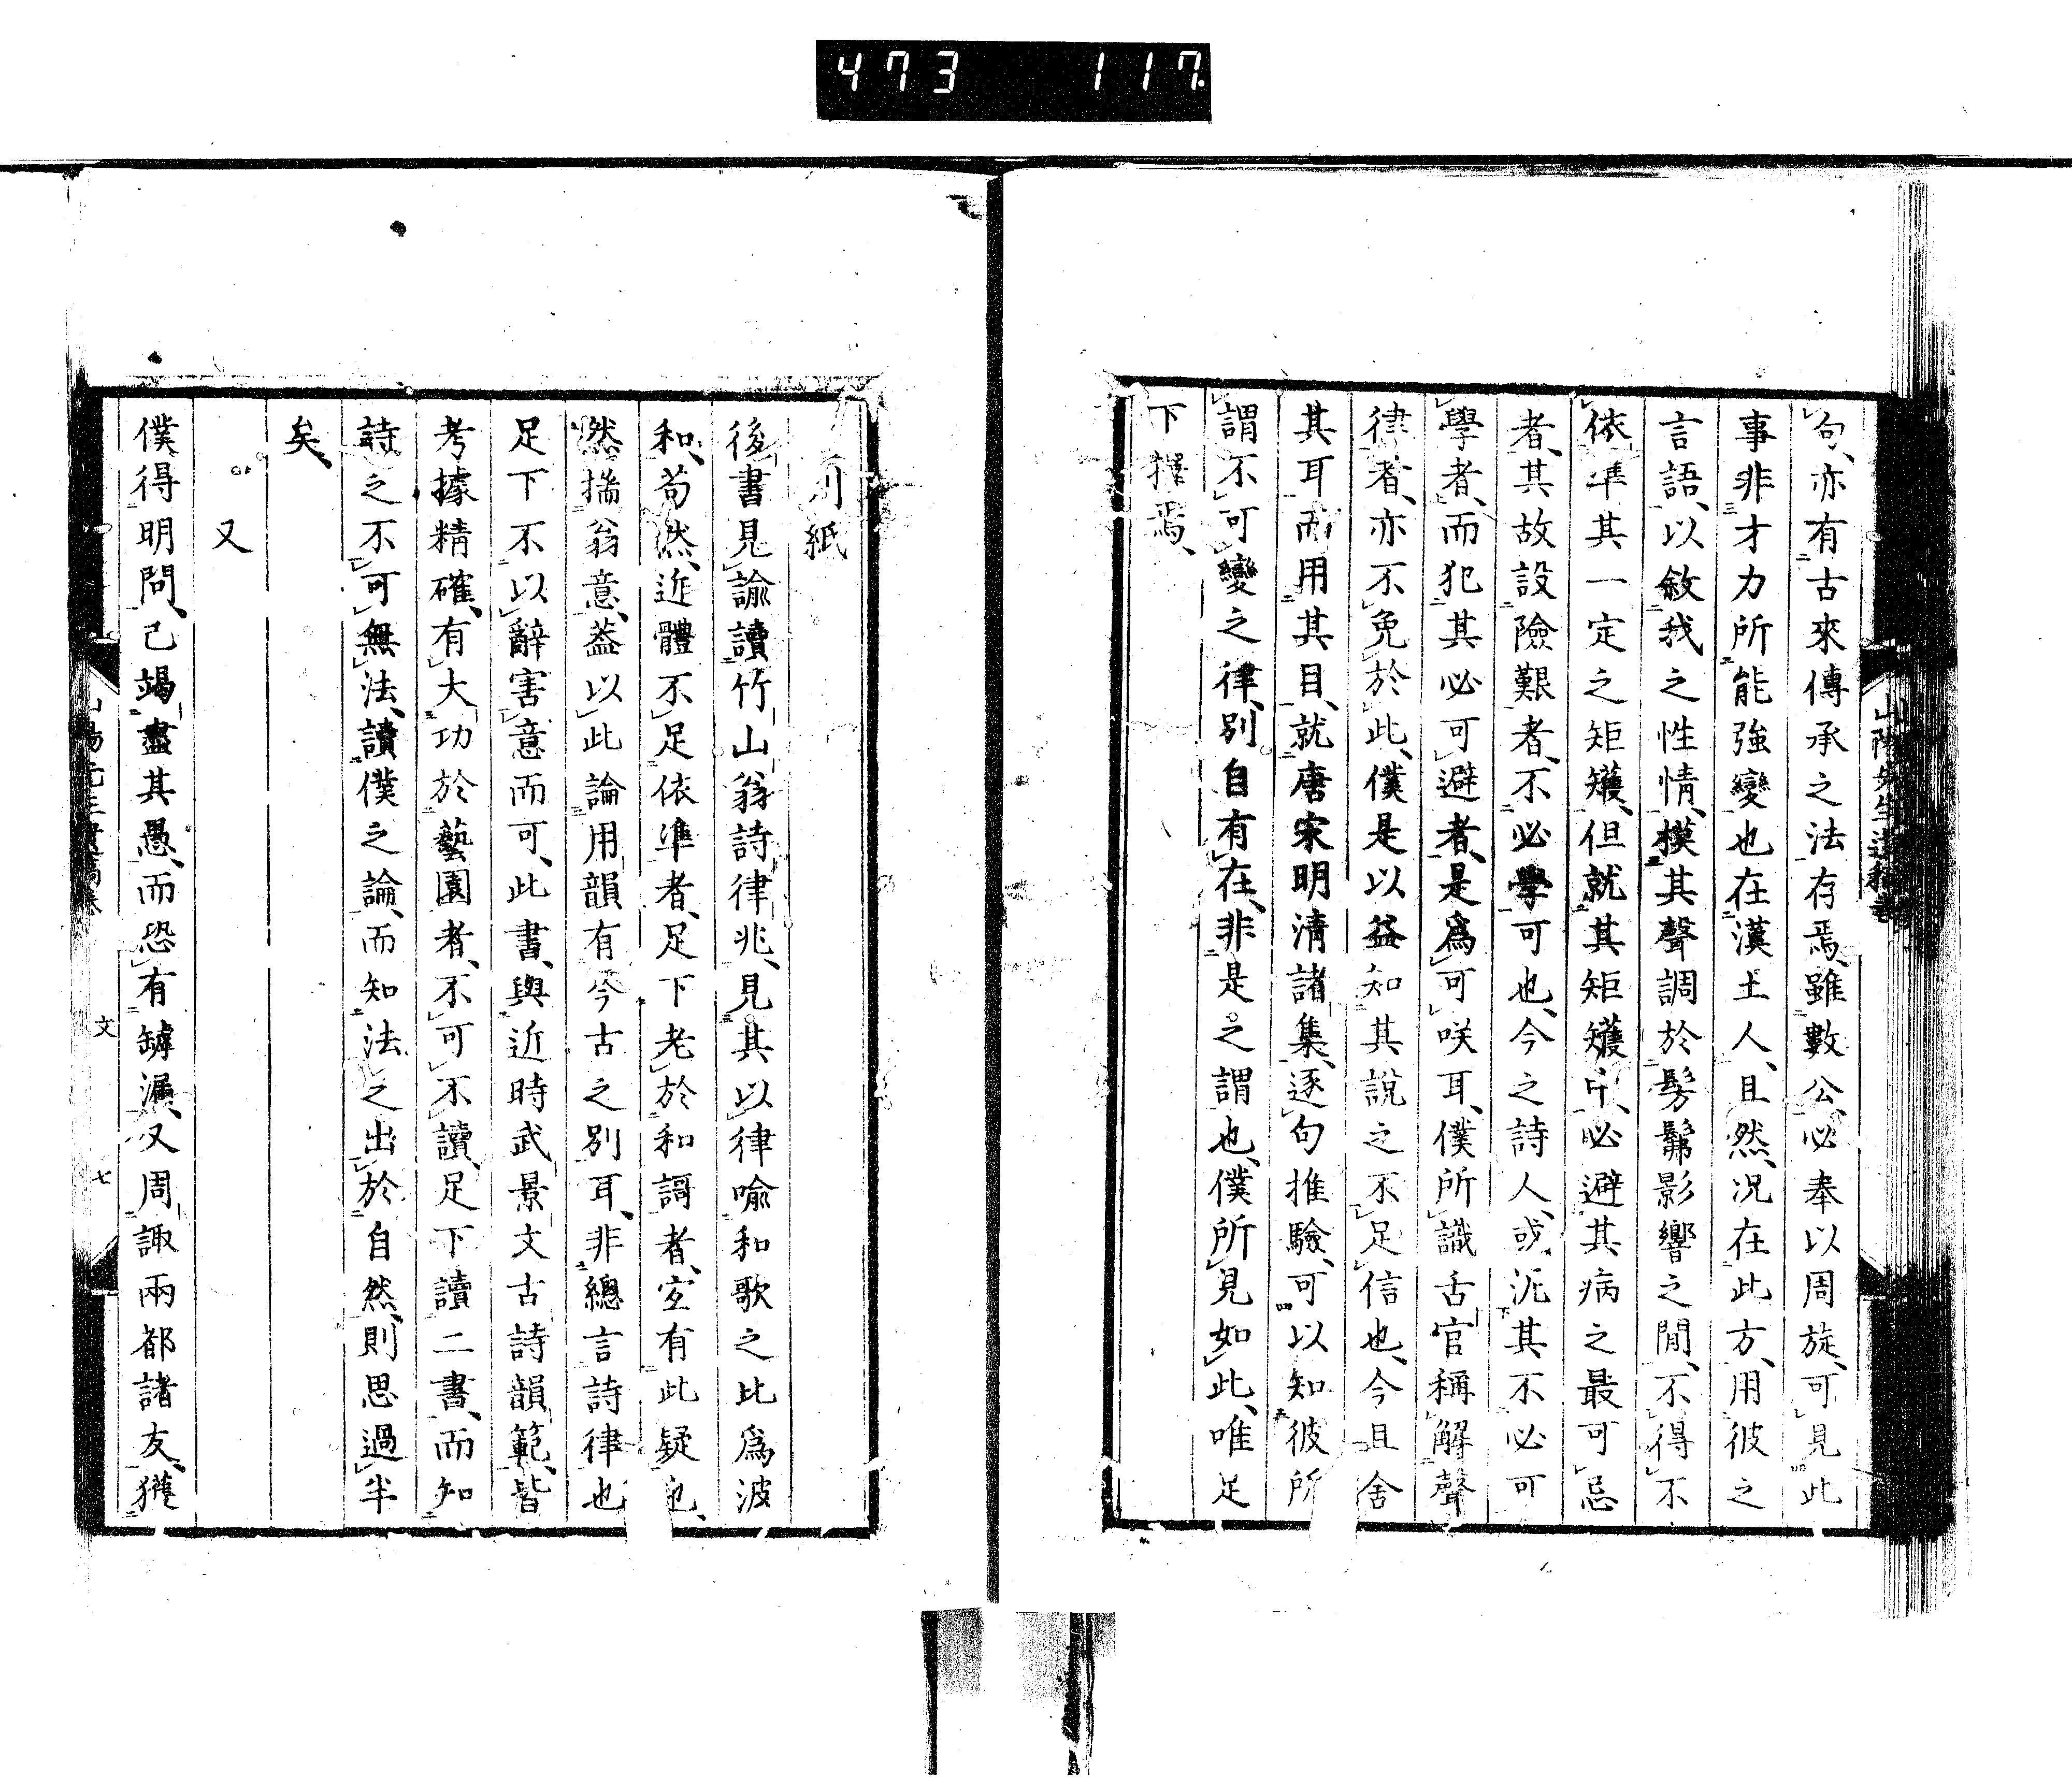 473 117
句、亦有古來傳承之法存焉、雖數公、必奉以周旋、可見此
事非才力所能強變也、在漢土人、且然、況在此方、用彼之
言語、以敘我之性情、模其聲調於髣髴影響之間、不得不
依準其一定之矩矱、但就其矩矱中、必避其病之最可忌
者、其故設險艱者、不必學可也、今之詩人、或泥其不必可
學者、而犯其必可避者、是爲可咲耳、僕所識舌官稱解聲
律者、亦不免於此、僕是以益知其說之不足信也、今且舍
其耳而用其目、就唐宋明清諸集、逐句推驗、可以知彼所
謂不可變之律、別自有在、非是之謂也、僕所見如此、唯足
下擇焉、
別紙
後書見諭讀竹山翁詩律兆、見其以律喻和歌之比爲波
和、苟然、近體不足依準者、足下老於和謌者、宜有此疑也、
然揣翁意、蓋以此論用韻有今古之別耳、非總言詩律也
足下不以辭害意而可、此書、與近時武景文古詩韻範、皆
考據精確、有大功於藝園者、不可不讀、足下讀二書、而知
詩之不可無法、讀僕之論、而知法之出於自然、則思過半
矣、
又
僕得明問、已竭盡其愚、而恐有罅漏、又周諏兩都諸友、獲
文 七